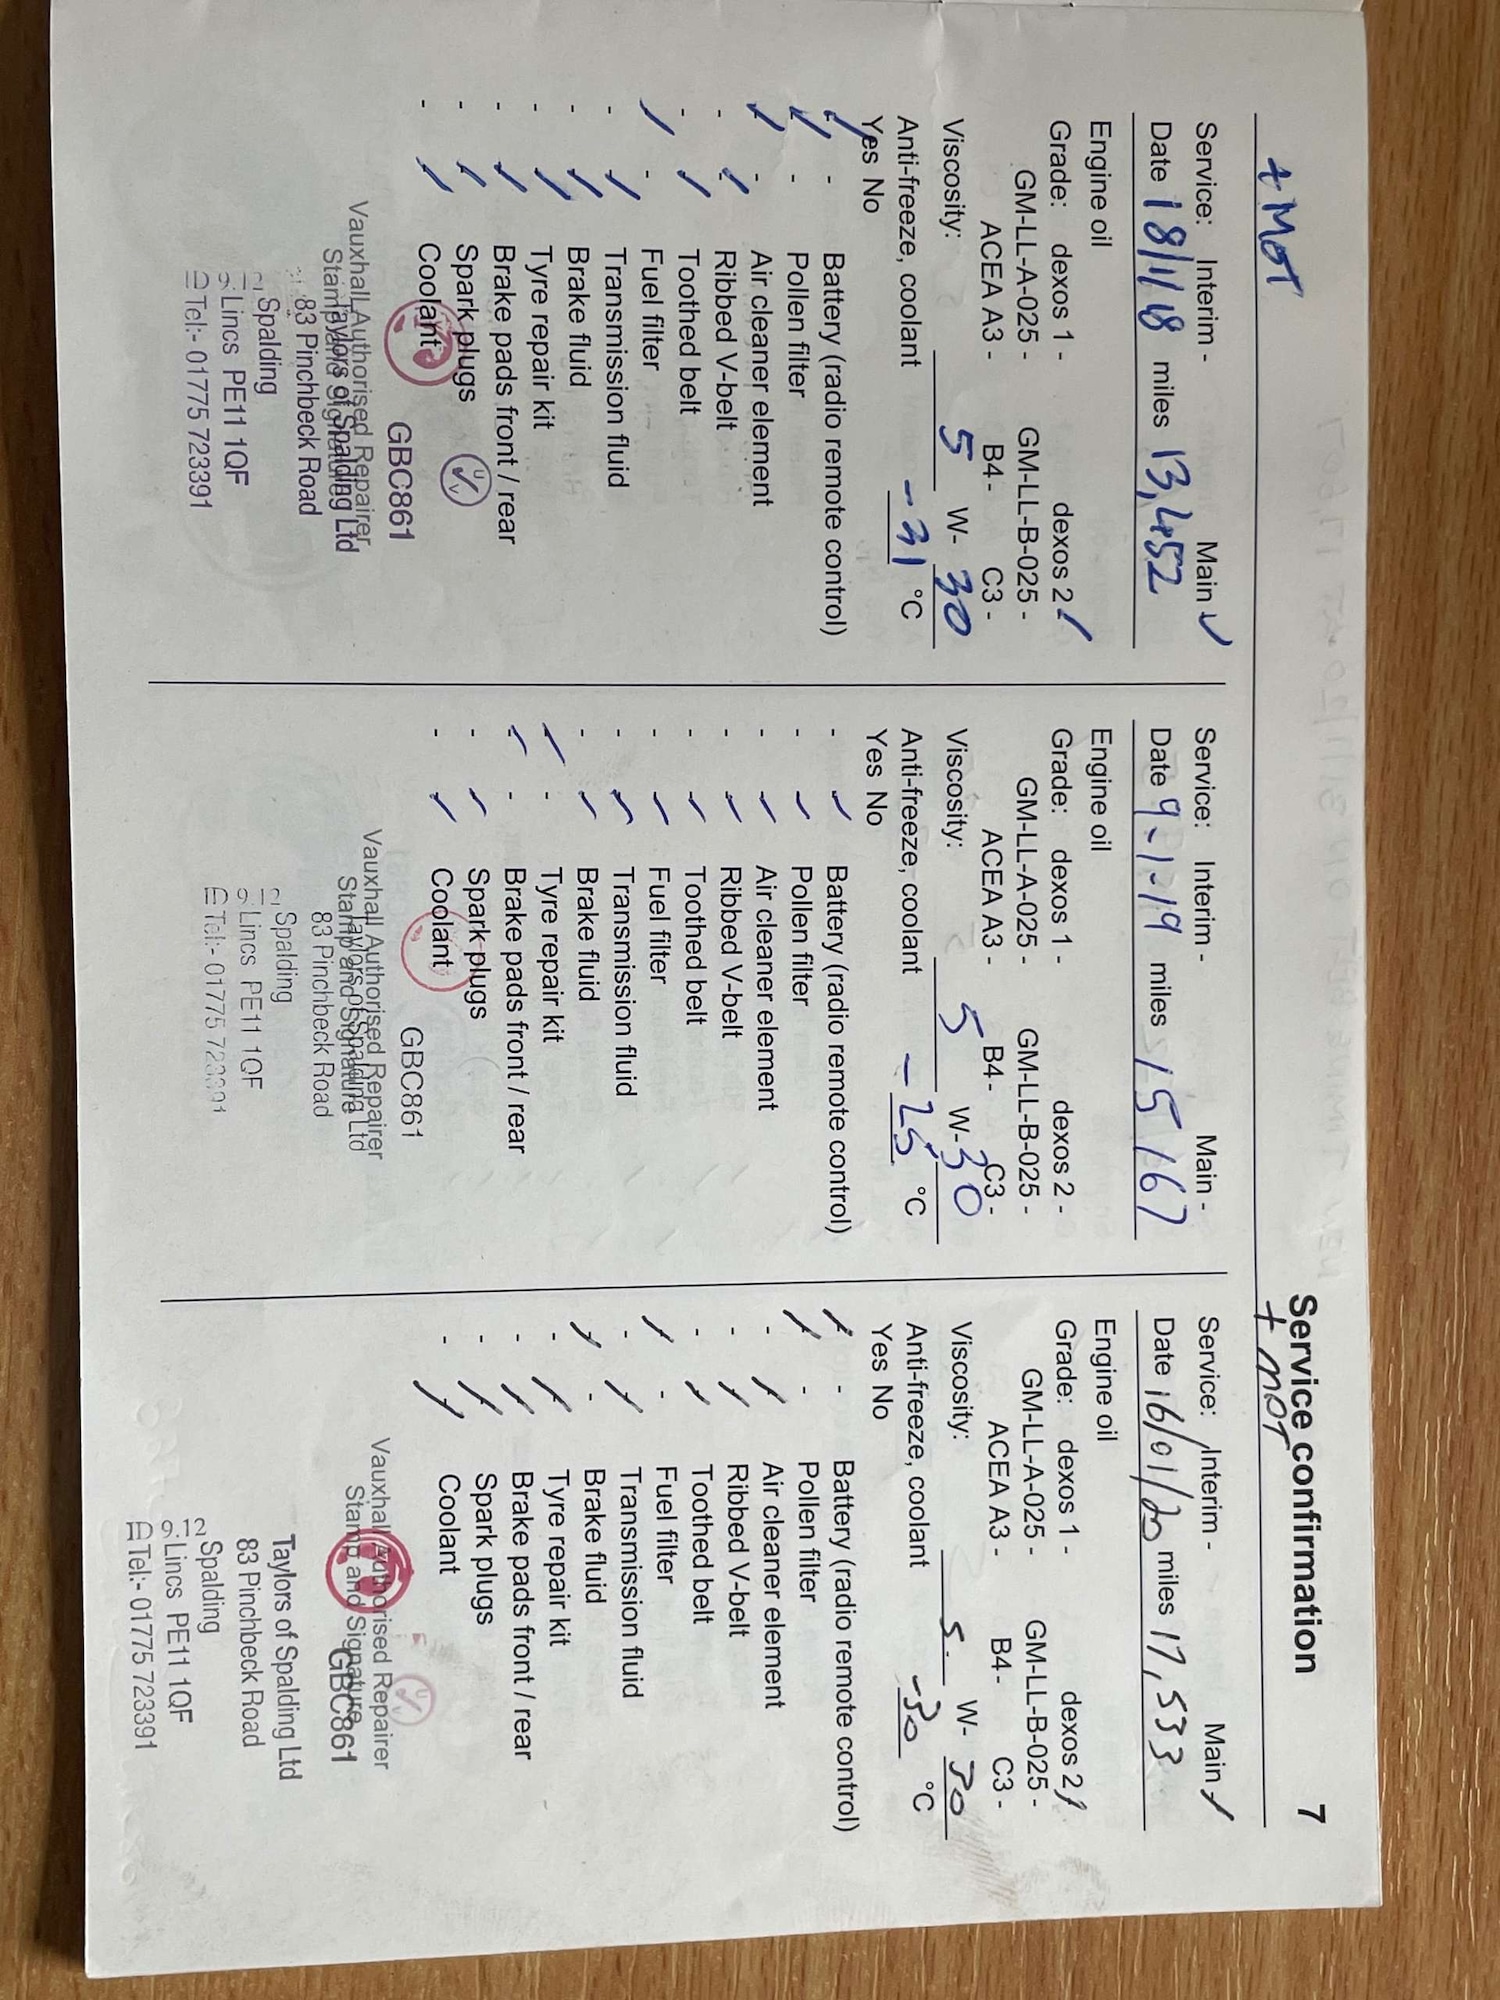 Service confirmation 7
+ MOT
Service: Interim - Main ✓
Date 18/1/18 miles 13,452
Engine oil
Grade: dexos 1 - dexos 2 ✓
GM-LL-A-025 - GM-LL-B-025 -
ACEA A3 - B4 - C3 -
Viscosity: 5 W- 30
Anti-freeze, coolant -31 °C
Yes No
✓ - Battery (radio remote control)
✓ - Pollen filter
✓ - Air cleaner element
- ✓ Ribbed V-belt
- ✓ Toothed belt
✓ - Fuel filter
- ✓ Transmission fluid
- ✓ Brake fluid
- ✓ Tyre repair kit
- ✓ Brake pads front / rear
- ✓ Spark plugs
- ✓ Coolant
GBC861
Vauxhall Authorised Repairer
Stamp and Signature
Taylors of Spalding Ltd
83 Pinchbeck Road
Spalding
Lincs PE11 1QF
Tel:- 01775 723391
Service: Interim - Main -
Date 9-1-19 miles 15167
Engine oil
Grade: dexos 1 - dexos 2 -
GM-LL-A-025 - GM-LL-B-025 -
ACEA A3 - B4 - C3 -
Viscosity: 5 W- 30
Anti-freeze, coolant -25 °C
Yes No
- ✓ Battery (radio remote control)
- ✓ Pollen filter
- ✓ Air cleaner element
- ✓ Ribbed V-belt
- ✓ Toothed belt
- ✓ Fuel filter
- ✓ Transmission fluid
- ✓ Brake fluid
✓ - Tyre repair kit
✓ - Brake pads front / rear
- ✓ Spark plugs
- ✓ Coolant
GBC861
Vauxhall Authorised Repairer
Stamp and Signature
Taylors of Spalding Ltd
83 Pinchbeck Road
Spalding
Lincs PE11 1QF
Tel:- 01775 723391
+ MOT
Service: Interim - Main ✓
Date 16/01/20 miles 17,533
Engine oil
Grade: dexos 1 - dexos 2 ✓
GM-LL-A-025 - GM-LL-B-025 -
ACEA A3 - B4 - C3 -
Viscosity: 5 W- 30
Anti-freeze, coolant -30 °C
Yes No
✓ - Battery (radio remote control)
✓ - Pollen filter
- ✓ Air cleaner element
- ✓ Ribbed V-belt
- ✓ Toothed belt
✓ - Fuel filter
- ✓ Transmission fluid
✓ - Brake fluid
- ✓ Tyre repair kit
- ✓ Brake pads front / rear
- ✓ Spark plugs
- ✓ Coolant
Vauxhall Authorised Repairer
Stamp and Signature
GBC861
Taylors of Spalding Ltd
83 Pinchbeck Road
Spalding
Lincs PE11 1QF
Tel:- 01775 723391